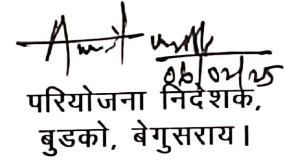 06/02/25
परियोजना निदेशक,
बुडको, बेगुसराय।